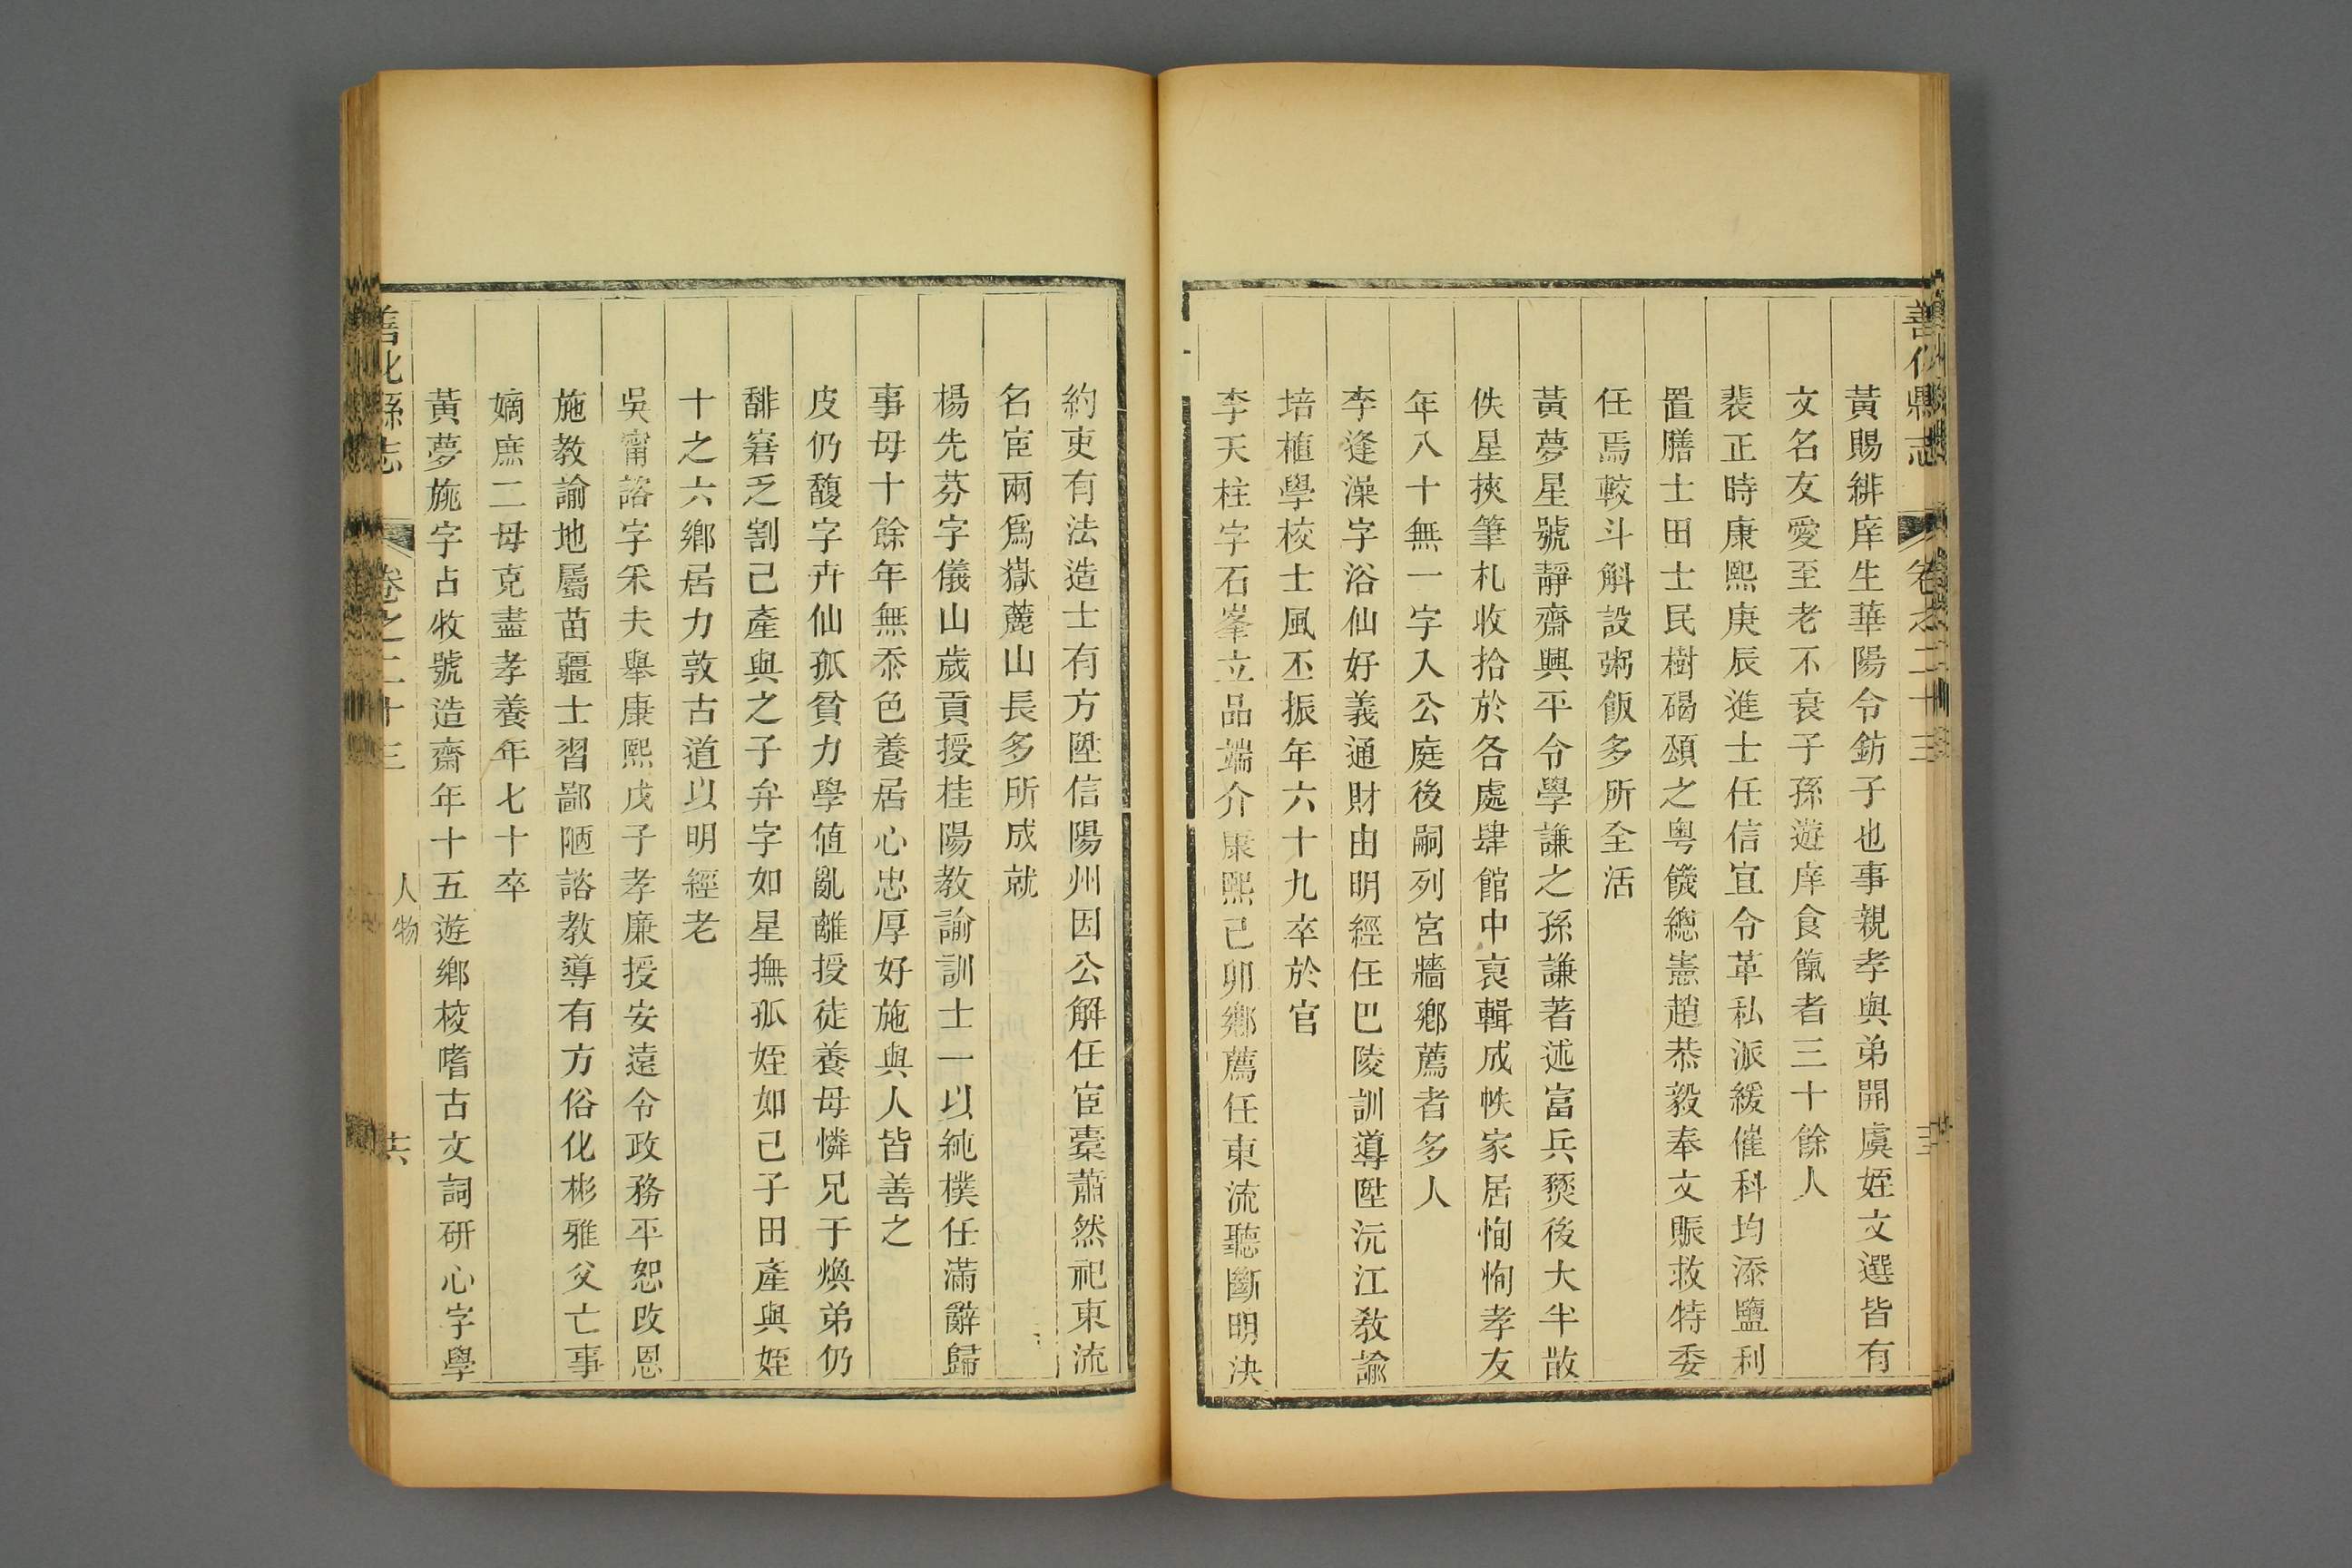 善化縣志
卷之二十三
黃賜緋庠生華陽令鈁子也事親孝與弟開虞姪文選皆有
文名友愛至老不衰子孫遊庠食餼者三十餘人
裴正時康熙庚辰進士任信宜令革私派緩催科均添鹽利
置膳士田士民樹碣頌之粤饑總憲趙恭毅奉文賑救特委
任焉較斗斛設粥飯多所全活
黃夢星號靜齋興平令學謙之孫謙著述富兵燹後大半散
佚星挾筆札收拾於各處肆館中裒輯成帙家居恂恂孝友
年八十無一字入公庭後嗣列宮牆鄉薦者多人
李逢澡字浴仙好義通財由明經任巴陵訓導陞沅江教諭
培植學校士風丕振年六十九卒於官
李天柱字石峯立品端介康熙己卯鄉薦任東流聽斷明決
約吏有法造士有方陞信陽州因公解任宦橐蕭然祀東流
名宦兩爲嶽麓山長多所成就
楊先芬字儀山歲貢授桂陽教諭訓士一以純樸任滿辭歸
事母十餘年無忝色養居心忠厚好施與人皆善之
皮仍馥字卉仙孤貧力學値亂離授徒養母憐兄于煥弟仍
馡窘乏割己產與之子弁字如星撫孤姪如己子田產與姪
十之六鄉居力敦古道以明經老
吳甯諮字采夫舉康熙戊子孝廉授安遠令政務平恕改恩
施教諭地屬苗疆士習鄙陋諮教導有方俗化彬雅父亡事
嫡庶二母克盡孝養年七十卒
黃夢旐字占牧號造齋年十五遊鄉校嗜古文詞研心字學
善化縣志
卷之二十三
人物
十六